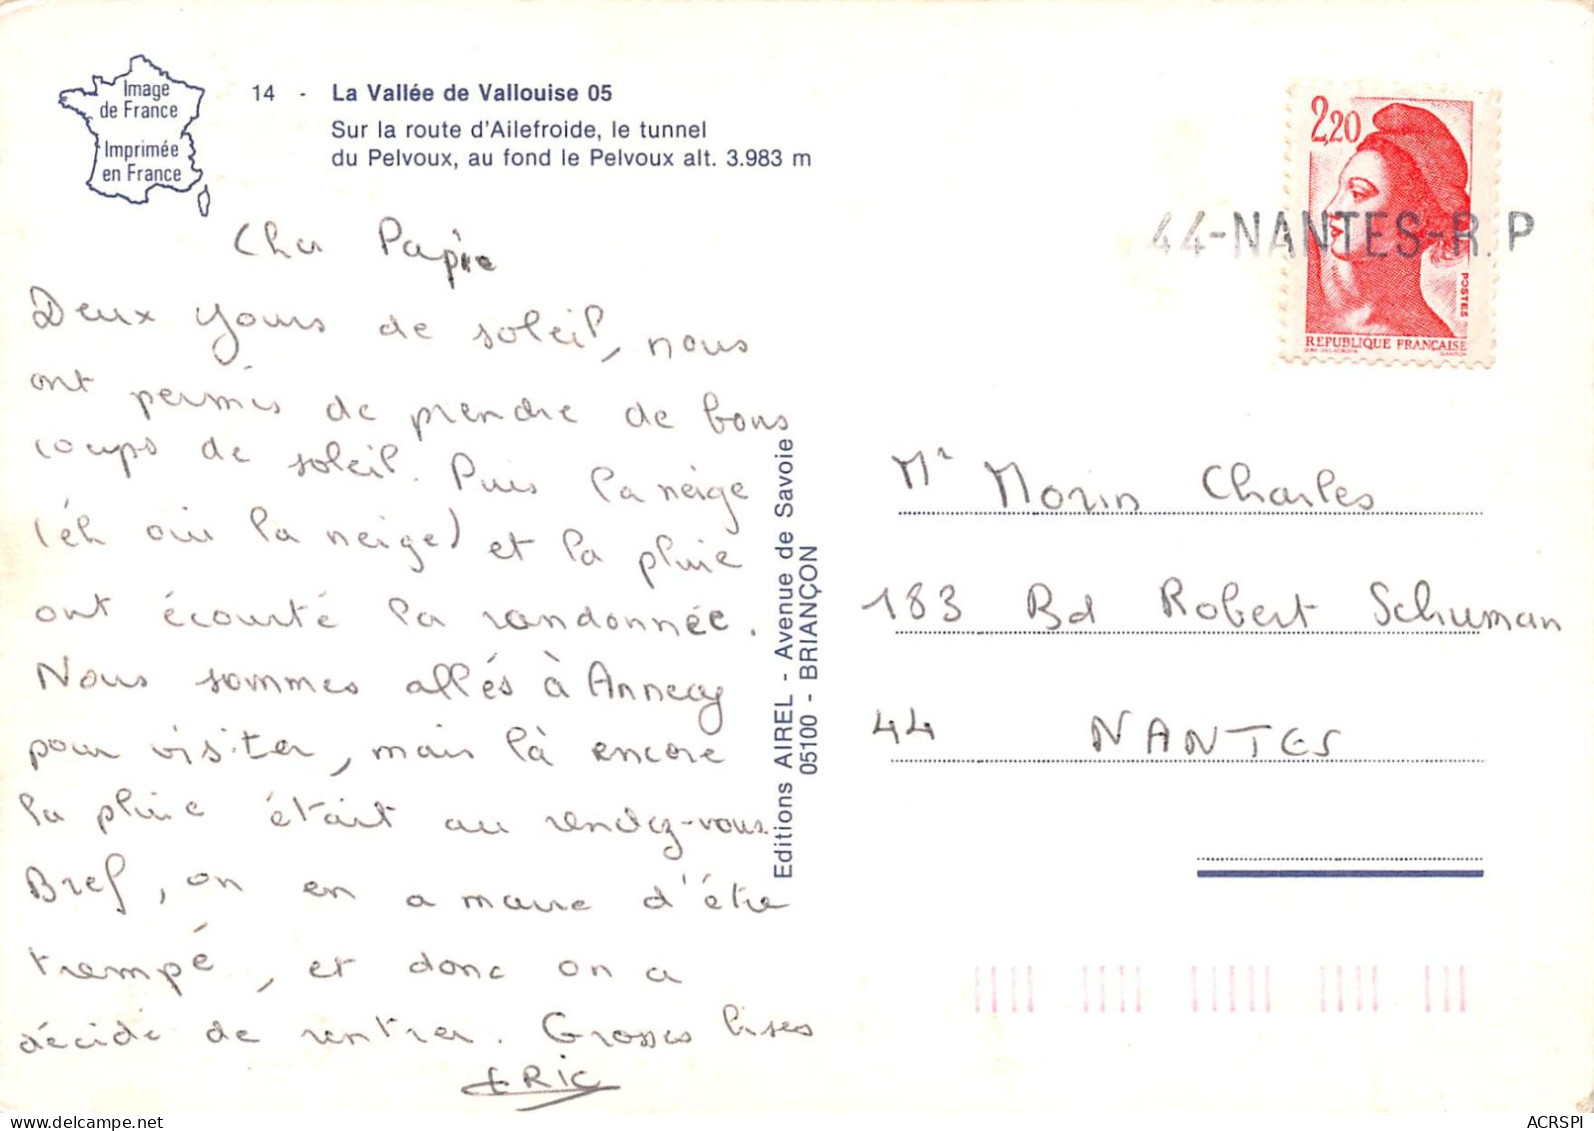 Image
de France
Imprimée
en France
14 - La Vallée de Vallouise 05
Sur la route d'Ailefroide, le tunnel
du Pelvoux, au fond le Pelvoux alt. 3.983 m
2,20
POSTES
REPUBLIQUE FRANÇAISE
44-NANTES-R.P
Cher Papie
Deux yours de soleil, nous
ont permis de prendre de bons
coups de soleil. Puis la neige
(éh oui la neige) et la pluie
ont écourté la randonnée.
Nous sommes allés à Annecy
pour visiter, mais là encore
la pluie était au rendez-vous.
Bref, on en a marre d'être
trempé, et donc on a
décidé de rentrer. Grosses bises
ERIC
Editions AIREL - Avenue de Savoie
05100 - BRIANÇON
Mr Morin Charles
183 Bd Robert Schuman
44 NANTES
ACRSPI